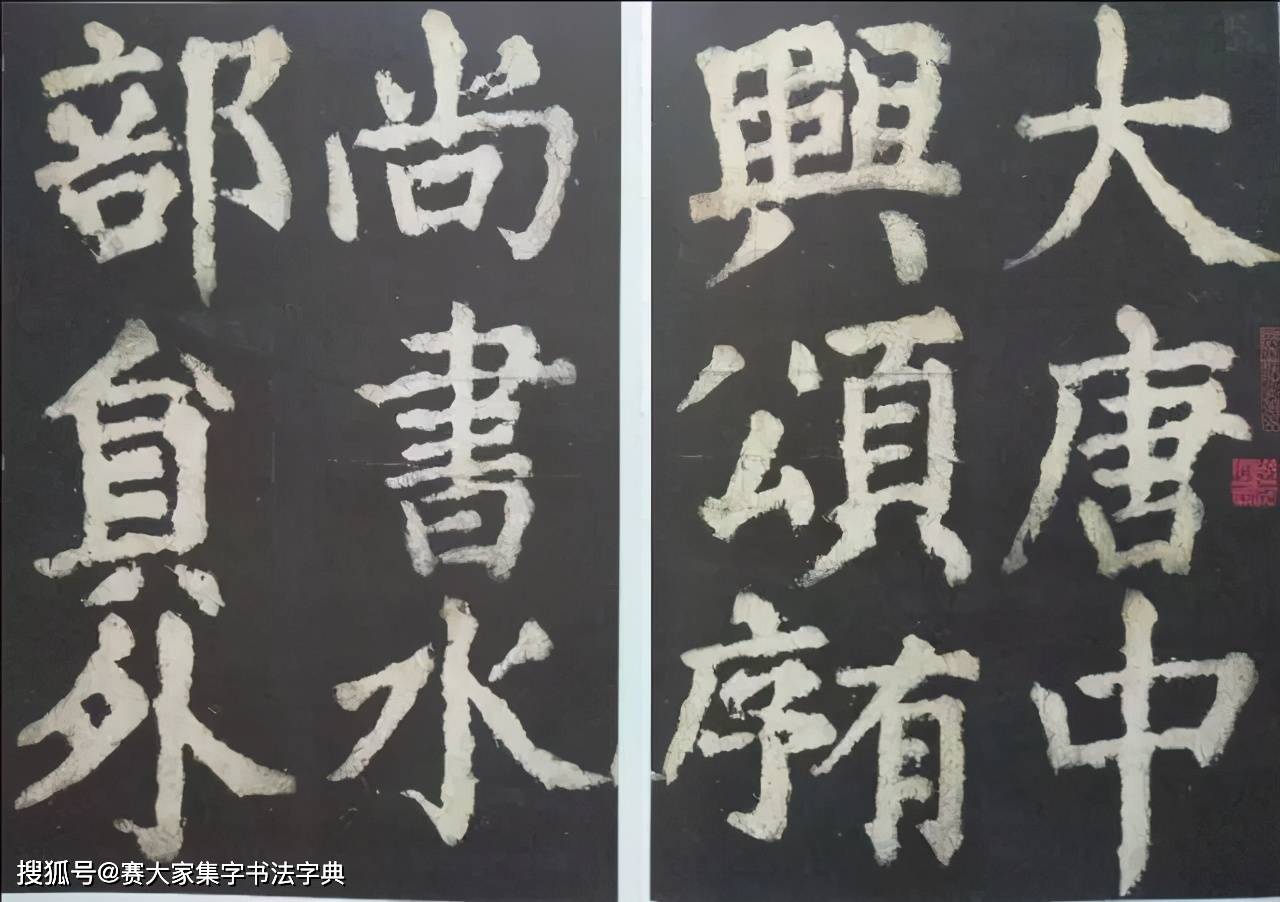 大唐中
興頌有序
尚書水
部貟外
搜狐号@赛大家集字书法字典